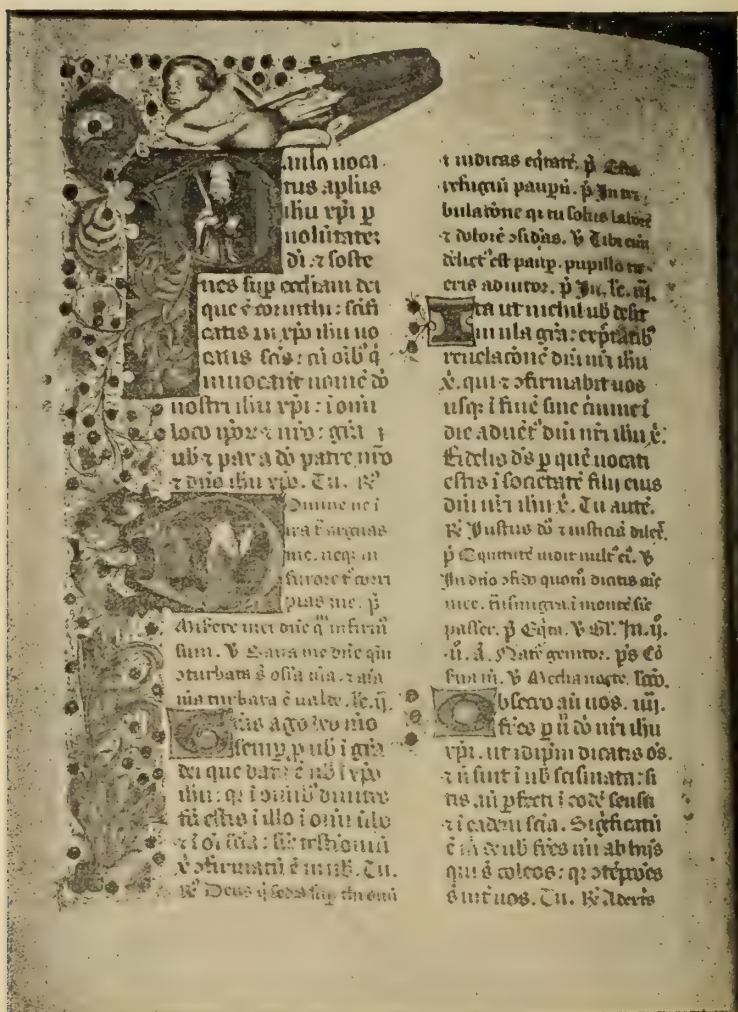 aulꝰ uoca
tus aplus
ihu xpi p
uolūtatez
dī ⁊ soste
nes sup eccliam dei
que ē corinthi: scīfi
catis in xpō ihu uo
catis scīs: cū oīb'
inuocant nomē dō
nostri ihu xpi: ī omī
loco ipoꝝ ⁊ nrō: grā
ub ⁊ pax a dō patre nrō
⁊ dnō ihu xpō. Tu. R
Domine ne ī
ira t arguas
me. neqꝫ in
furore t corri
pias me. p
Misere mei dne qm infirm
sum. V Sana me dne qm
ↄturbata s ossa mea. ⁊ aīa
mea turbata ē ualde. le. ij.
ras ago deo meo
semp p ub ī grā
dei que data ē uob ī xpō
ihu: qꝛ ī omīb'
estis ī illo ī omī
⁊ ī oī scīa: sic testīonīū
x ↄfirmatū ē ī uob. Tu.
R Deus q sedes sup thronū
⁊ iudicas eqtatē. p Esto
refugiū paupū. p In tri
bulatōne qꝛ tu solus laborē
⁊ dolorē ↄsidas. V Tibi enī
delict' est paup. pupillo tu
eris adiutor. p In. le. iij.
ta ut nichil ub desit
in ulla grā: expctātib'
reuelatōnē dnī nrī ihu
x. qui ⁊ ↄfirmabit uos
usqꝫ ī finē sine crimine ī
die aduēt' dnī nrī ihu x:
Fidelis ds p quē uocati
estis ī societatē filij eius
dnī nrī ihu x. Tu autē.
R Iustus dō ⁊ iusticiā dilex.
p Equitatē uidit uult' ei'. V
In dno ↄfido quomō dicitis aīe
mee. trāsmigra ī montē sic
passer. p Eqta. V Gl. In. ij.
.n. a. Natē genitor. ps Cō
V Media nocte. le.
bsecro aū uos. iiij.
fres p n dō nrī ihu
xpi. ut idipm dicatis oēs.
⁊ n sint ī ub scismata: si
tis aū pfecti ī eodē sensu
⁊ ī eadem scīa. Significatū
ē ī de uob fres mī ab hijs
qui s coleos: qꝛ ↄtēptōes
s int uos. Tu. R